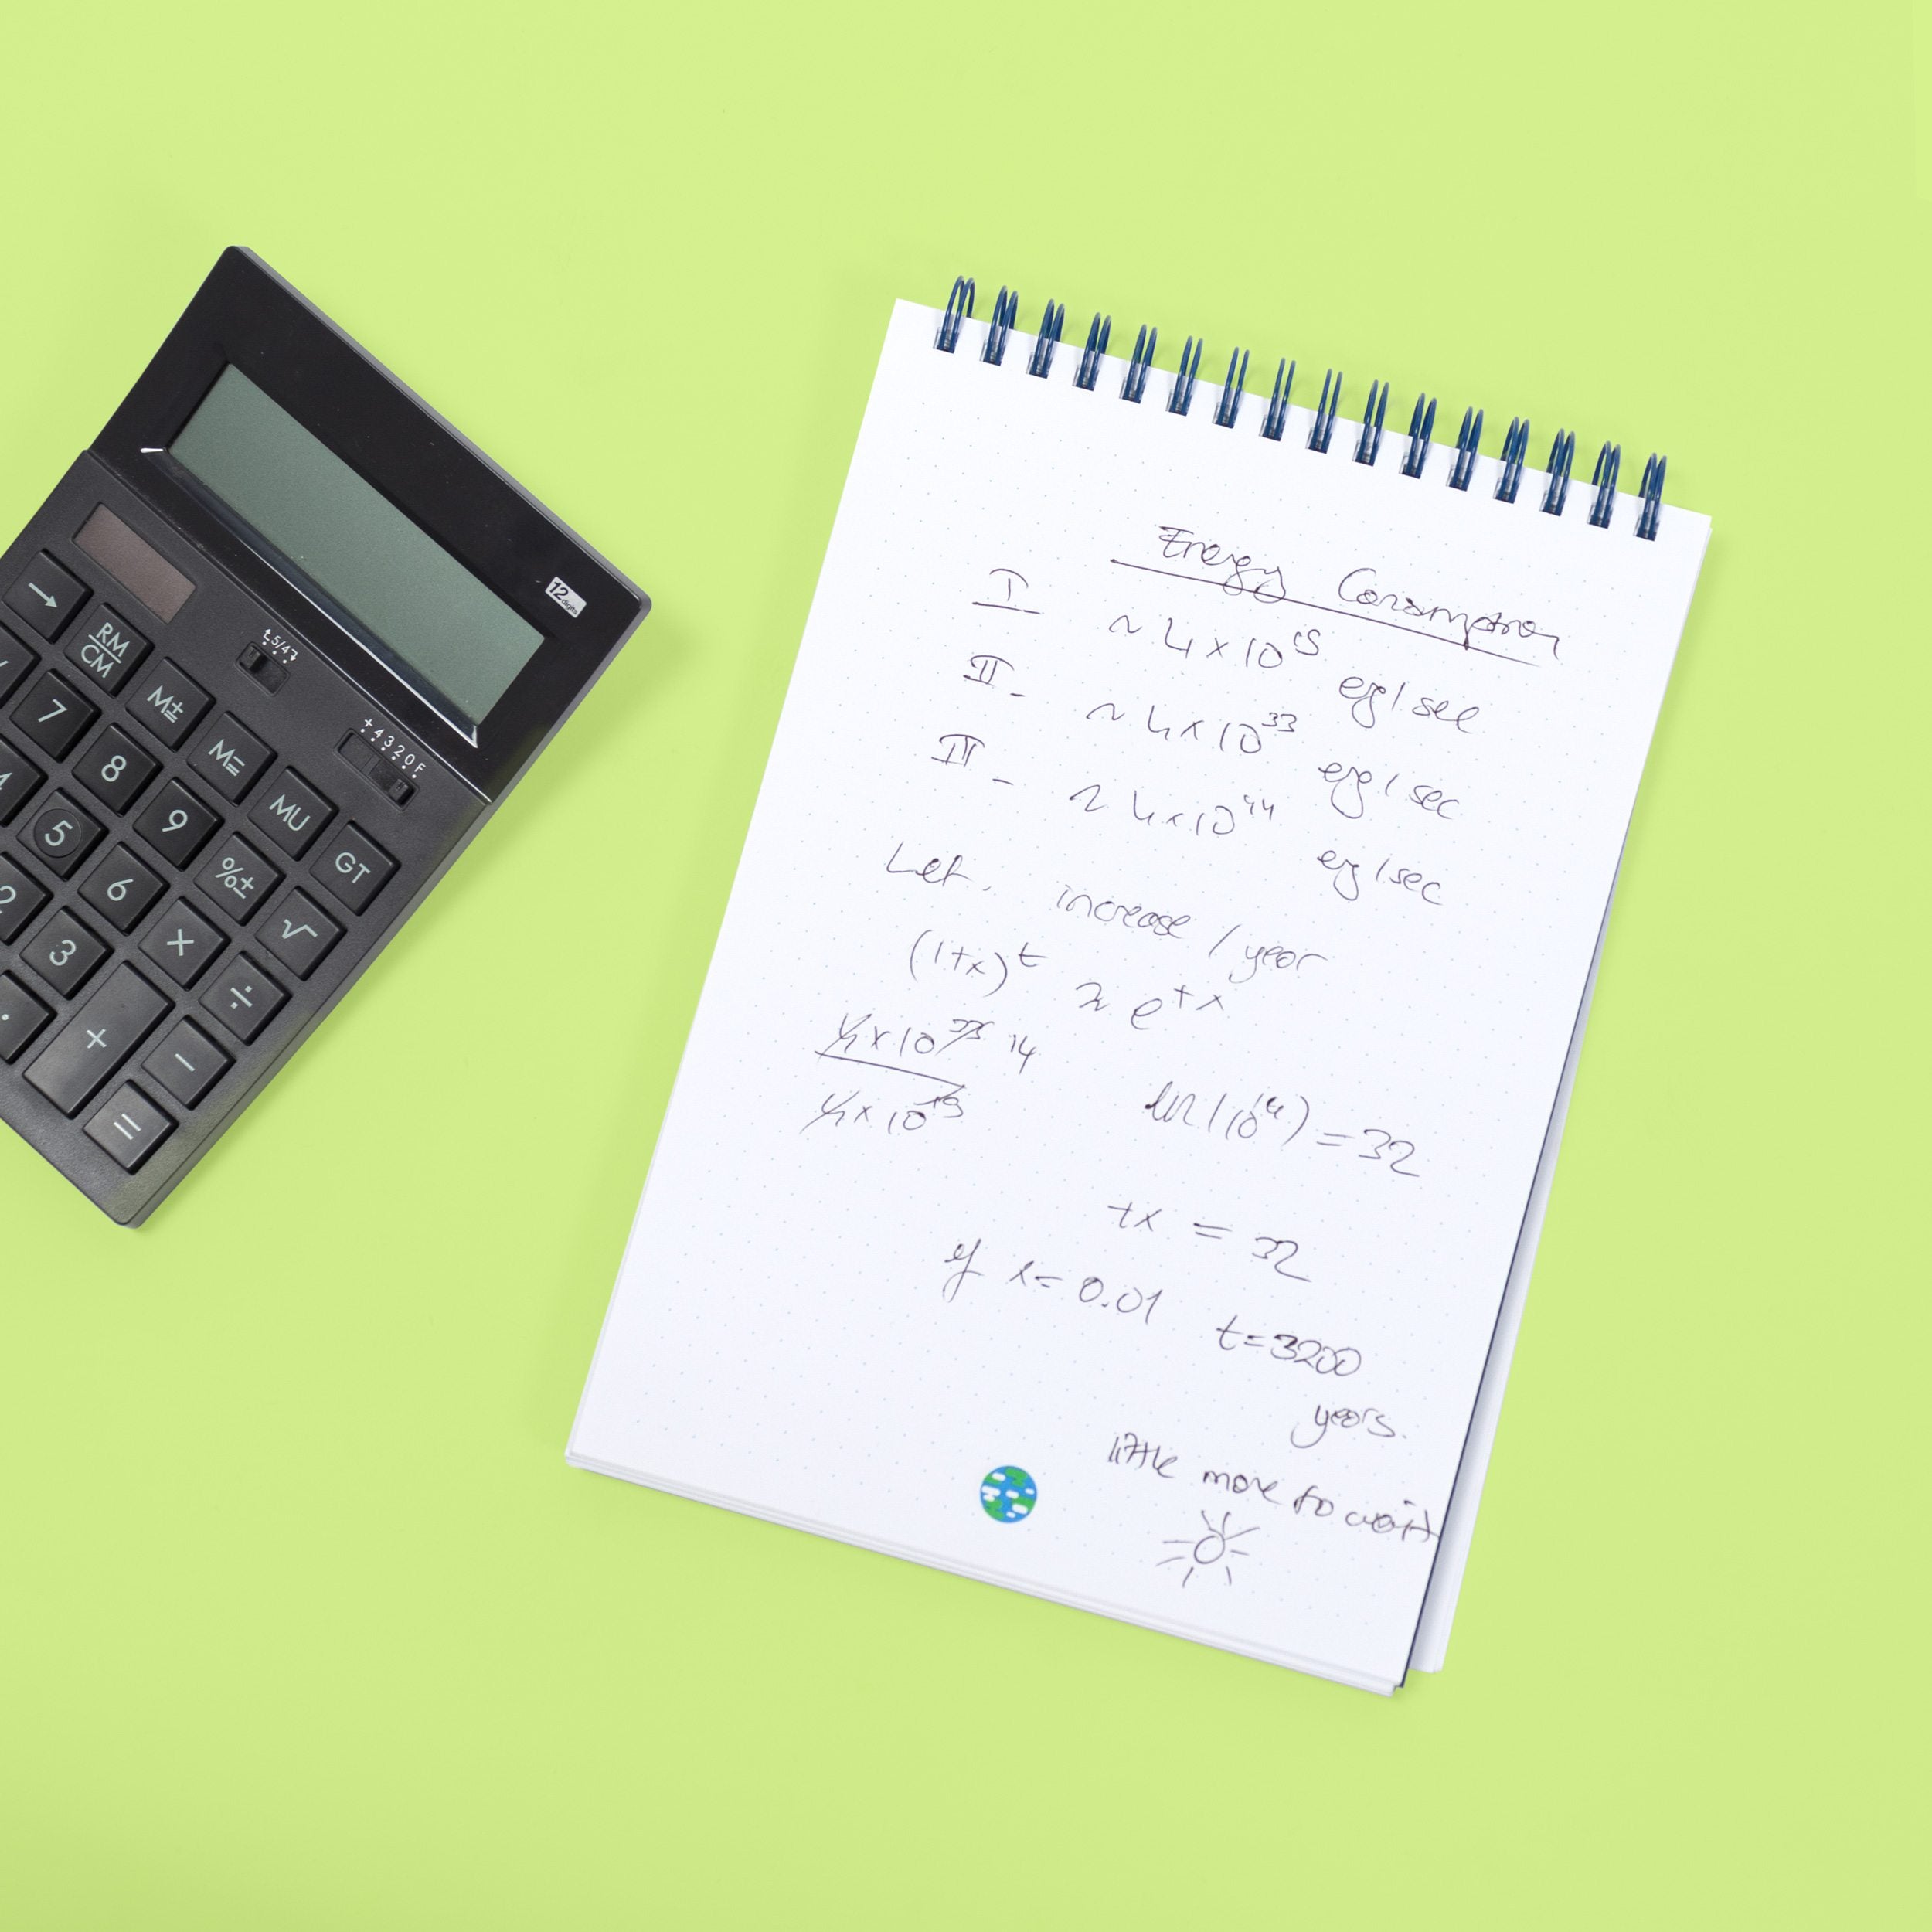 Energy Consumption
I ~ 4 x 10^19 erg/sec
II - ~ 4 x 10^33 erg/sec
III - ~ 4 x 10^44 erg/sec
Let. increase / year
(1+x)^t ≈ e^tx
4 x 10^33 14
4 x 10^19
ln(10^14) = 32
tx = 32
if x = 0.01 t = 3200
years.
little more to wait
12 digits
↑ 5/4 ↓
+ 4 3 2 0 F
→
RM/CM
M± M= MU GT
7 8 9 %± √
4 5 6 × ÷
2 3 + −
.
=